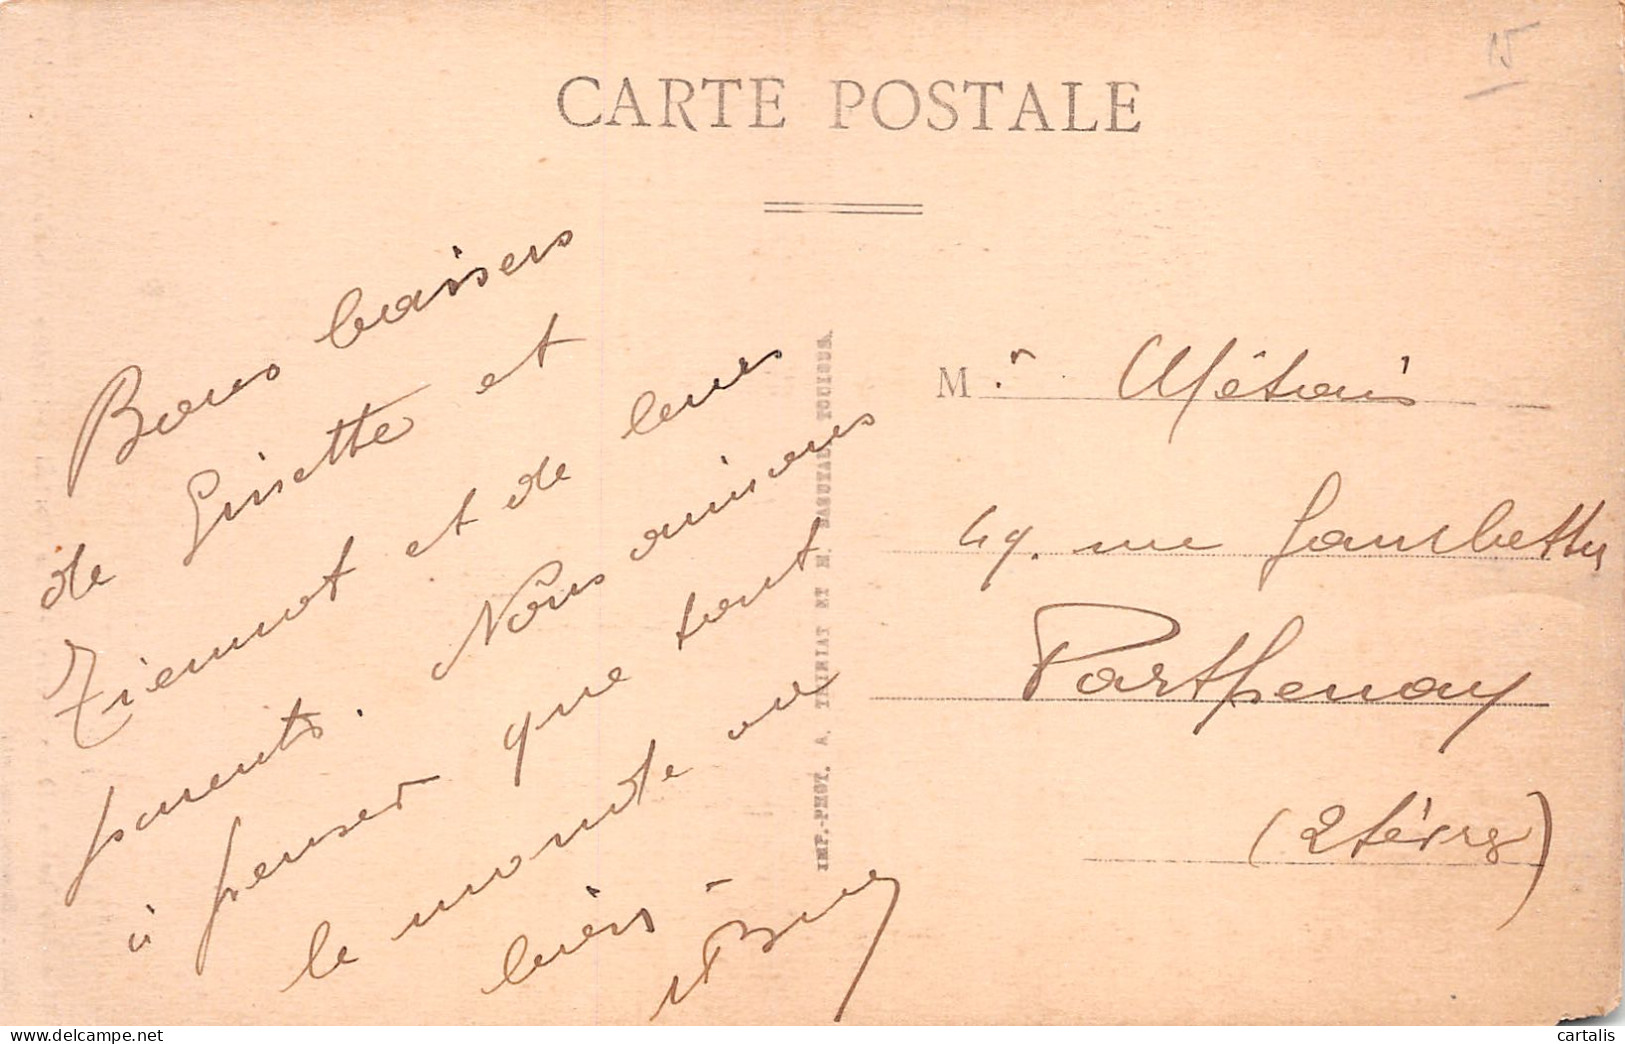 15
CARTE POSTALE
Bons baisers
de Ginette et
et de leurs
parents. Nous aimons
à penser que tout
le monde va
bien -
M.r Métais
49. rue Gambetta
Parthenay
(2 Sèvres)
IMP.-PHOT. A. THIRIAT ET H. BASUYAU, TOULOUSE.
cartalis
www.delcampe.net